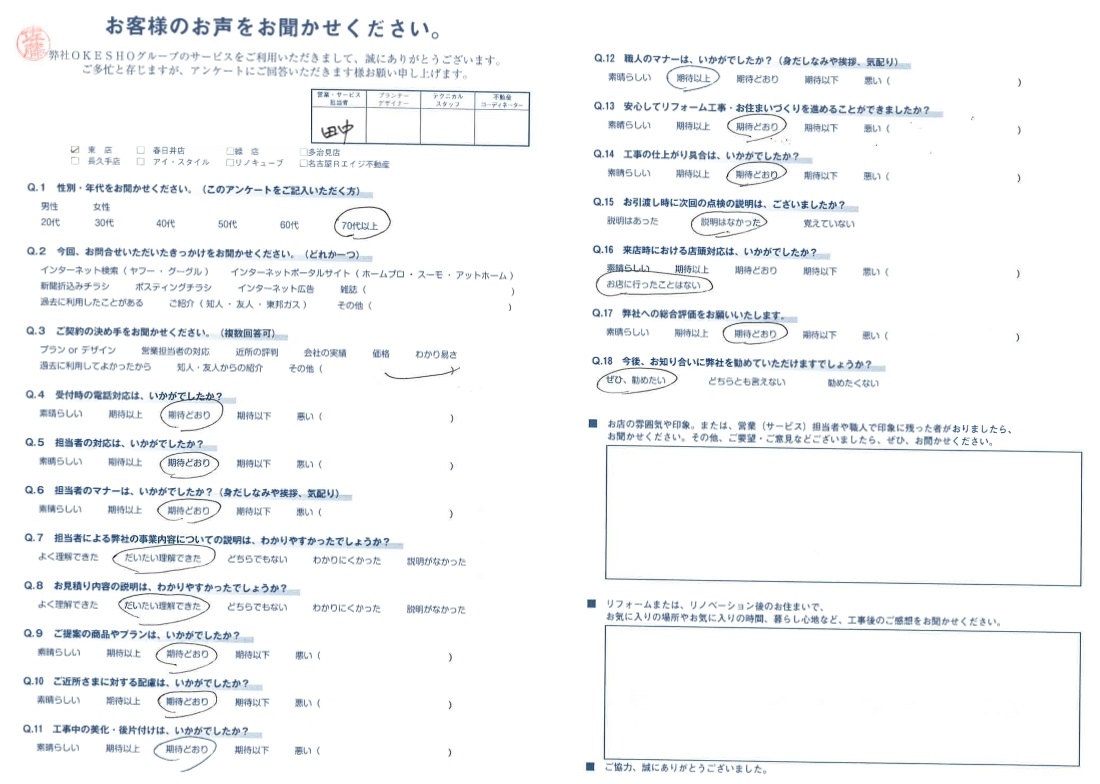 お客様のお声をお聞かせください。
弊社ＯＫＥＳＨＯグループのサービスをご利用いただきまして、誠にありがとうございます。
ご多忙と存じますが、アンケートにご回答いただきます様お願い申し上げます。
営業・サービス担当者 プランナーデザイナー テクニカルスタッフ 不動産コーディネーター
田中
☑ 東 店 □ 春日井店 □緑 店 □多治見店
□ 長久手店 □ アイ・スタイル □リノキューブ □名古屋Ｒエイジ不動産
Q.1 性別・年代をお聞かせください。（このアンケートをご記入いただく方）
男性 女性
20代 30代 40代 50代 60代 70代以上
Q.2 今回、お問合せいただいたきっかけをお聞かせください。（どれか一つ）
インターネット検索（ ヤフー ・ グーグル ） インターネットポータルサイト（ ホームプロ ・ スーモ ・ アットホーム ）
新聞折込みチラシ ポスティングチラシ インターネット広告 雑誌（ ）
過去に利用したことがある ご紹介（ 知人 ・ 友人 ・ 東邦ガス ） その他（ ）
Q.3 ご契約の決め手をお聞かせください。（複数回答可）
プラン or デザイン 営業担当者の対応 近所の評判 会社の実績 価格 わかり易さ
過去に利用してよかったから 知人・友人からの紹介 その他（ ）
Q.4 受付時の電話対応は、いかがでしたか？
素晴らしい 期待以上 期待どおり 期待以下 悪い（ ）
Q.5 担当者の対応は、いかがでしたか？
素晴らしい 期待以上 期待どおり 期待以下 悪い（ ）
Q.6 担当者のマナーは、いかがでしたか？（身だしなみや挨拶、気配り）
素晴らしい 期待以上 期待どおり 期待以下 悪い（ ）
Q.7 担当者による弊社の事業内容についての説明は、わかりやすかったでしょうか？
よく理解できた だいたい理解できた どちらでもない わかりにくかった 説明がなかった
Q.8 お見積り内容の説明は、わかりやすかったでしょうか？
よく理解できた だいたい理解できた どちらでもない わかりにくかった 説明がなかった
Q.9 ご提案の商品やプランは、いかがでしたか？
素晴らしい 期待以上 期待どおり 期待以下 悪い（ ）
Q.10 ご近所さまに対する配慮は、いかがでしたか？
素晴らしい 期待以上 期待どおり 期待以下 悪い（ ）
Q.11 工事中の美化・後片付けは、いかがでしたか？
素晴らしい 期待以上 期待どおり 期待以下 悪い（ ）
Q.12 職人のマナーは、いかがでしたか？（身だしなみや挨拶、気配り）
素晴らしい 期待以上 期待どおり 期待以下 悪い（ ）
Q.13 安心してリフォーム工事・お住まいづくりを進めることができましたか？
素晴らしい 期待以上 期待どおり 期待以下 悪い（ ）
Q.14 工事の仕上がり具合は、いかがでしたか？
素晴らしい 期待以上 期待どおり 期待以下 悪い（ ）
Q.15 お引渡し時に次回の点検の説明は、ございましたか？
説明はあった 説明はなかった 覚えていない
Q.16 来店時における店頭対応は、いかがでしたか？
素晴らしい 期待以上 期待どおり 期待以下 悪い（ ）
お店に行ったことはない
Q.17 弊社への総合評価をお願いいたします。
素晴らしい 期待以上 期待どおり 期待以下 悪い（ ）
Q.18 今後、お知り合いに弊社を勧めていただけますでしょうか？
ぜひ、勧めたい どちらとも言えない 勧めたくない
■ お店の雰囲気や印象。または、営業（サービス）担当者や職人で印象に残った者がおりましたら、
お聞かせください。その他、ご要望・ご意見などございましたら、ぜひ、お聞かせください。
■ リフォームまたは、リノベーション後のお住まいで、
お気に入りの場所やお気に入りの時間、暮らし心地など、工事後のご感想をお聞かせください。
■ ご協力、誠にありがとうございました。